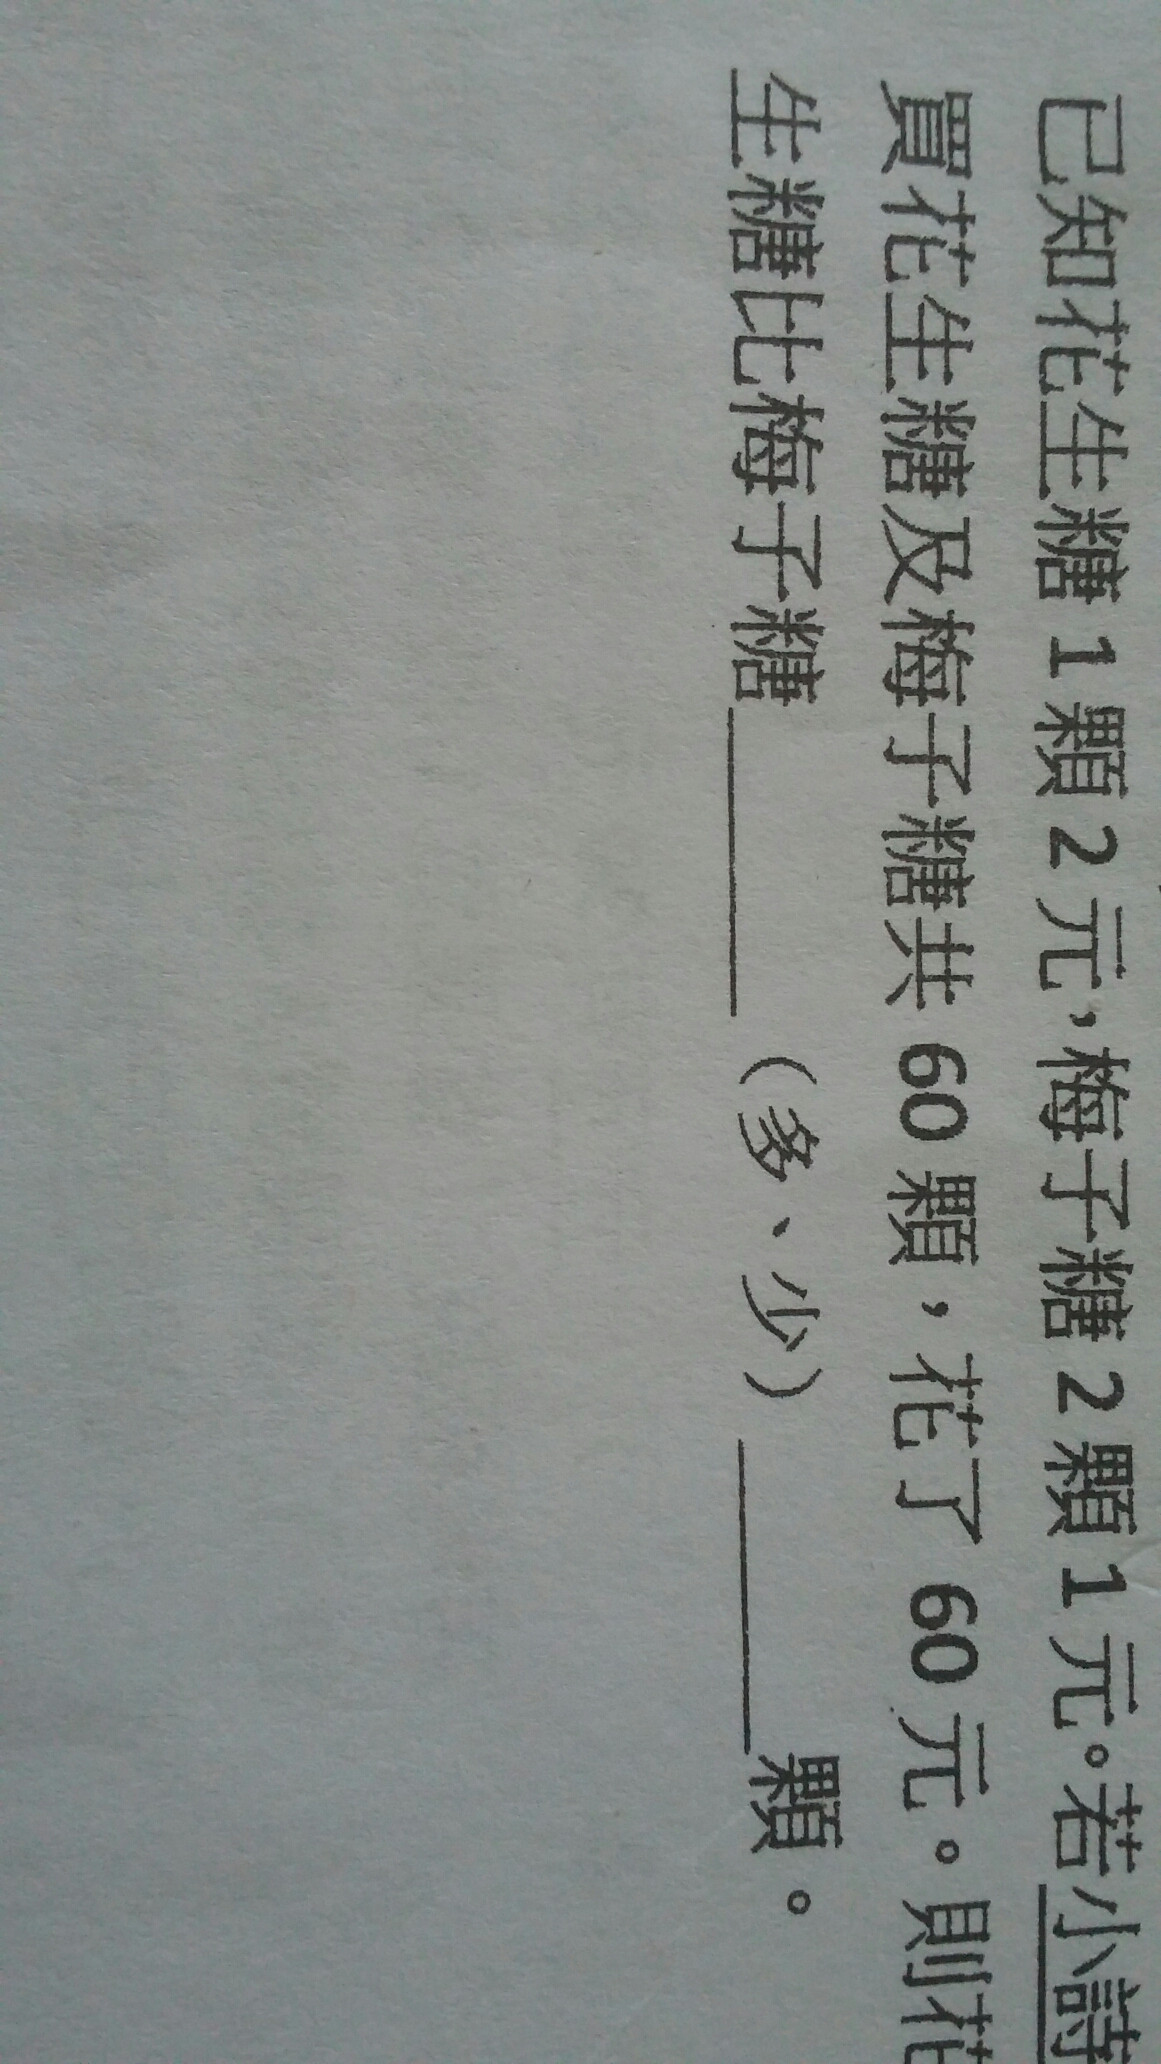 已知花生糖 1 顆 2 元，梅子糖 2 顆 1 元。若小詩
買花生糖及梅子糖共 60 顆，花了 60 元。則花
生糖比梅子糖______（多、少）______顆。